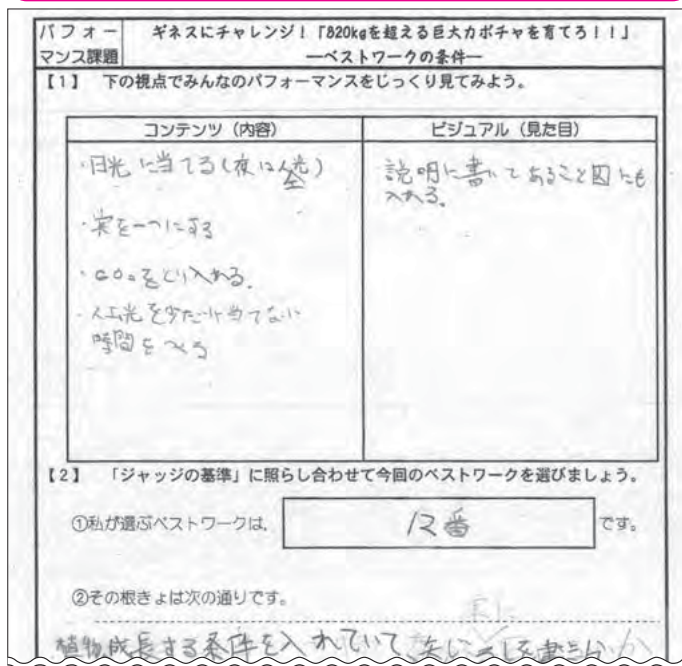 パフォー
マンス課題
ギネスにチャレンジ！「820kgを超える巨大カボチャを育てろ！！」
―ベストワークの条件―
【1】 下の視点でみんなのパフォーマンスをじっくり見てみよう。
コンテンツ（内容）
・日光に当てる（夜は人光）
・実を一つにする
・CO₂をとり入れる。
・人工光を少しだけ当てない
時間をつくる
ビジュアル（見た目）
説明に書いてあること図にも
入れる。
【2】 「ジャッジの基準」に照らし合わせて今回のベストワークを選びましょう。
①私が選ぶベストワークは、
12番
です。
②その根きょは次の通りです。
植物成長する条件を入れていて